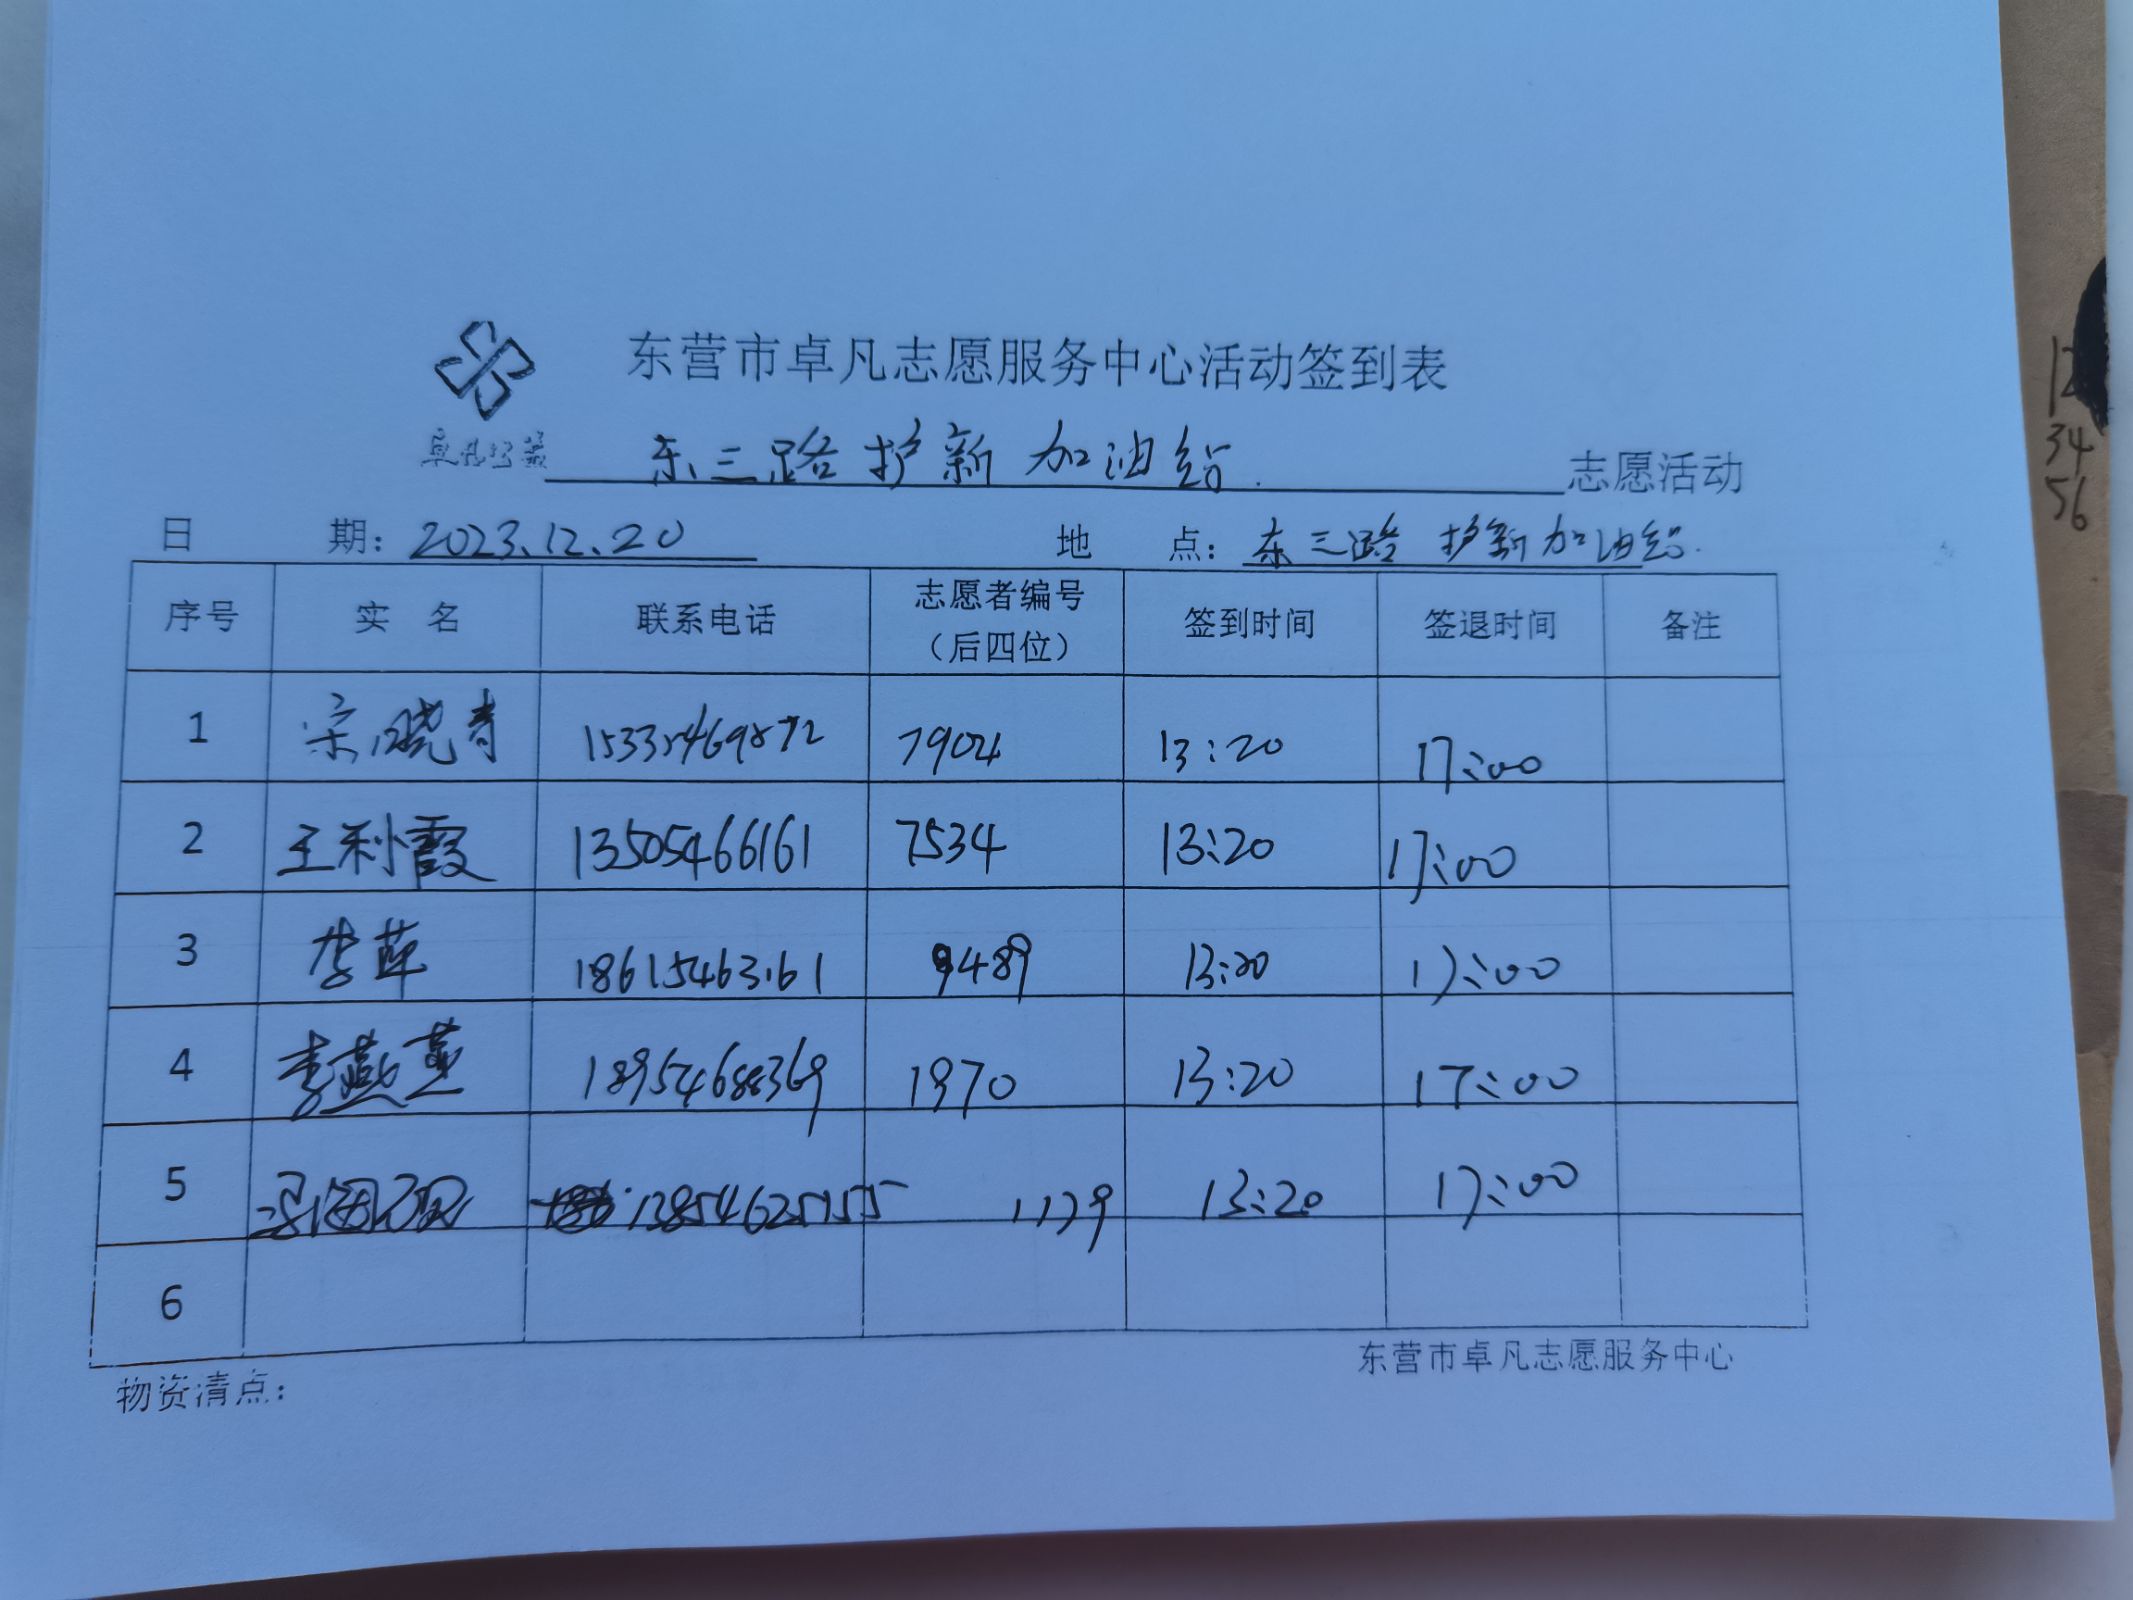 东营市卓凡志愿服务中心活动签到表
卓凡公益 东三路护新加油站 志愿活动
日 期：2023.12.20 地 点：东三路护新加油站
序号 实 名 联系电话 志愿者编号（后四位） 签到时间 签退时间 备注
1 宋晓青 7904 13:20 17:00
2 王利霞 13505466161 7534 13:20 17:00
3 李萍 18615463161 9489 13:20 17:00
4 李燕 18954688369 1970 13:20 17:00
5 13854625155 13:20 17:00
6
物资清点：
东营市卓凡志愿服务中心
12
34
56